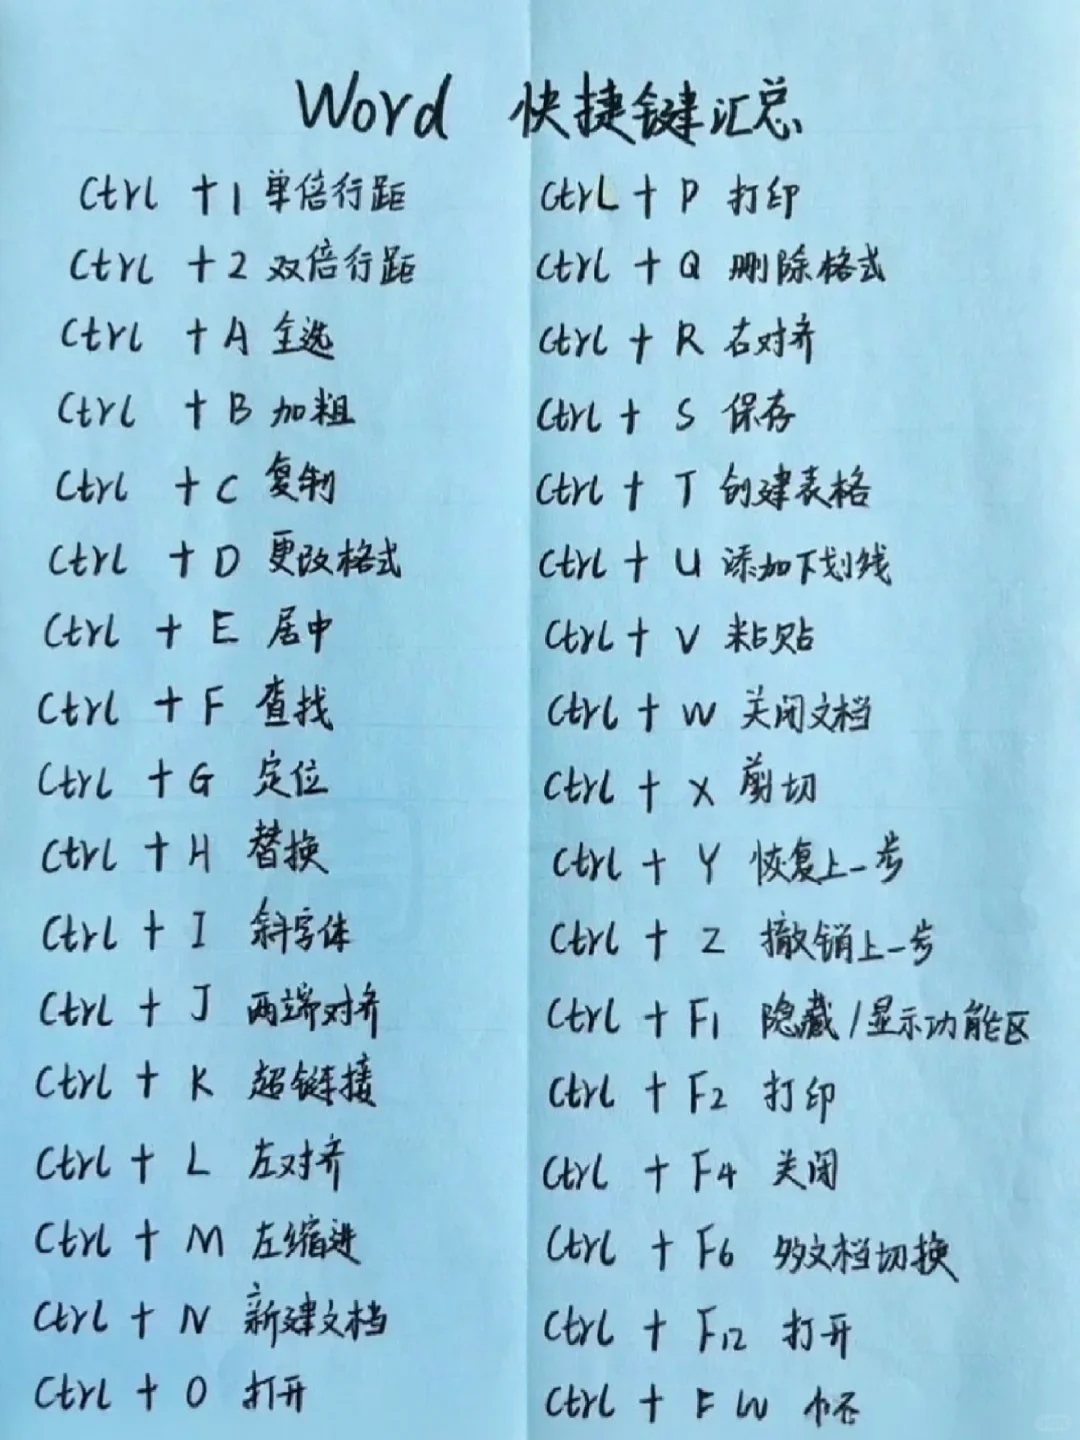 Word 快捷键汇总
Ctrl +1 单倍行距
Ctrl +2 双倍行距
Ctrl +A 全选
Ctrl +B 加粗
Ctrl +C 复制
Ctrl +D 更改格式
Ctrl + E 居中
Ctrl + F 查找
Ctrl + G 定位
Ctrl + H 替换
Ctrl + I 斜字体
Ctrl + J 两端对齐
Ctrl + K 超链接
Ctrl + L 左对齐
Ctrl + M 左缩进
Ctrl + N 新建文档
Ctrl + O 打开
Ctrl + P 打印
Ctrl + Q 删除格式
Ctrl + R 右对齐
Ctrl + S 保存
Ctrl + T 创建表格
Ctrl + U 添加下划线
Ctrl + V 粘贴
Ctrl + W 关闭文档
Ctrl + X 剪切
Ctrl + Y 恢复上一步
Ctrl + Z 撤销上一步
Ctrl + F1 隐藏/显示功能区
Ctrl + F2 打印
Ctrl + F4 关闭
Ctrl + F6 多文档切换
Ctrl + F12 打开
Ctrl + F W